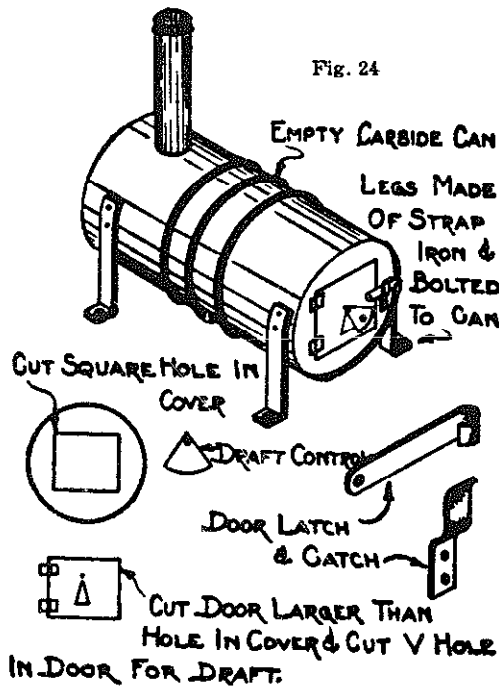 Fig. 24
EMPTY CARBIDE CAN
LEGS MADE
OF STRAP
IRON &
BOLTED
TO CAN
CUT SQUARE HOLE IN
COVER
DRAFT CONTROL
DOOR LATCH
& CATCH
CUT DOOR LARGER THAN
HOLE IN COVER & CUT V HOLE
IN DOOR FOR DRAFT.